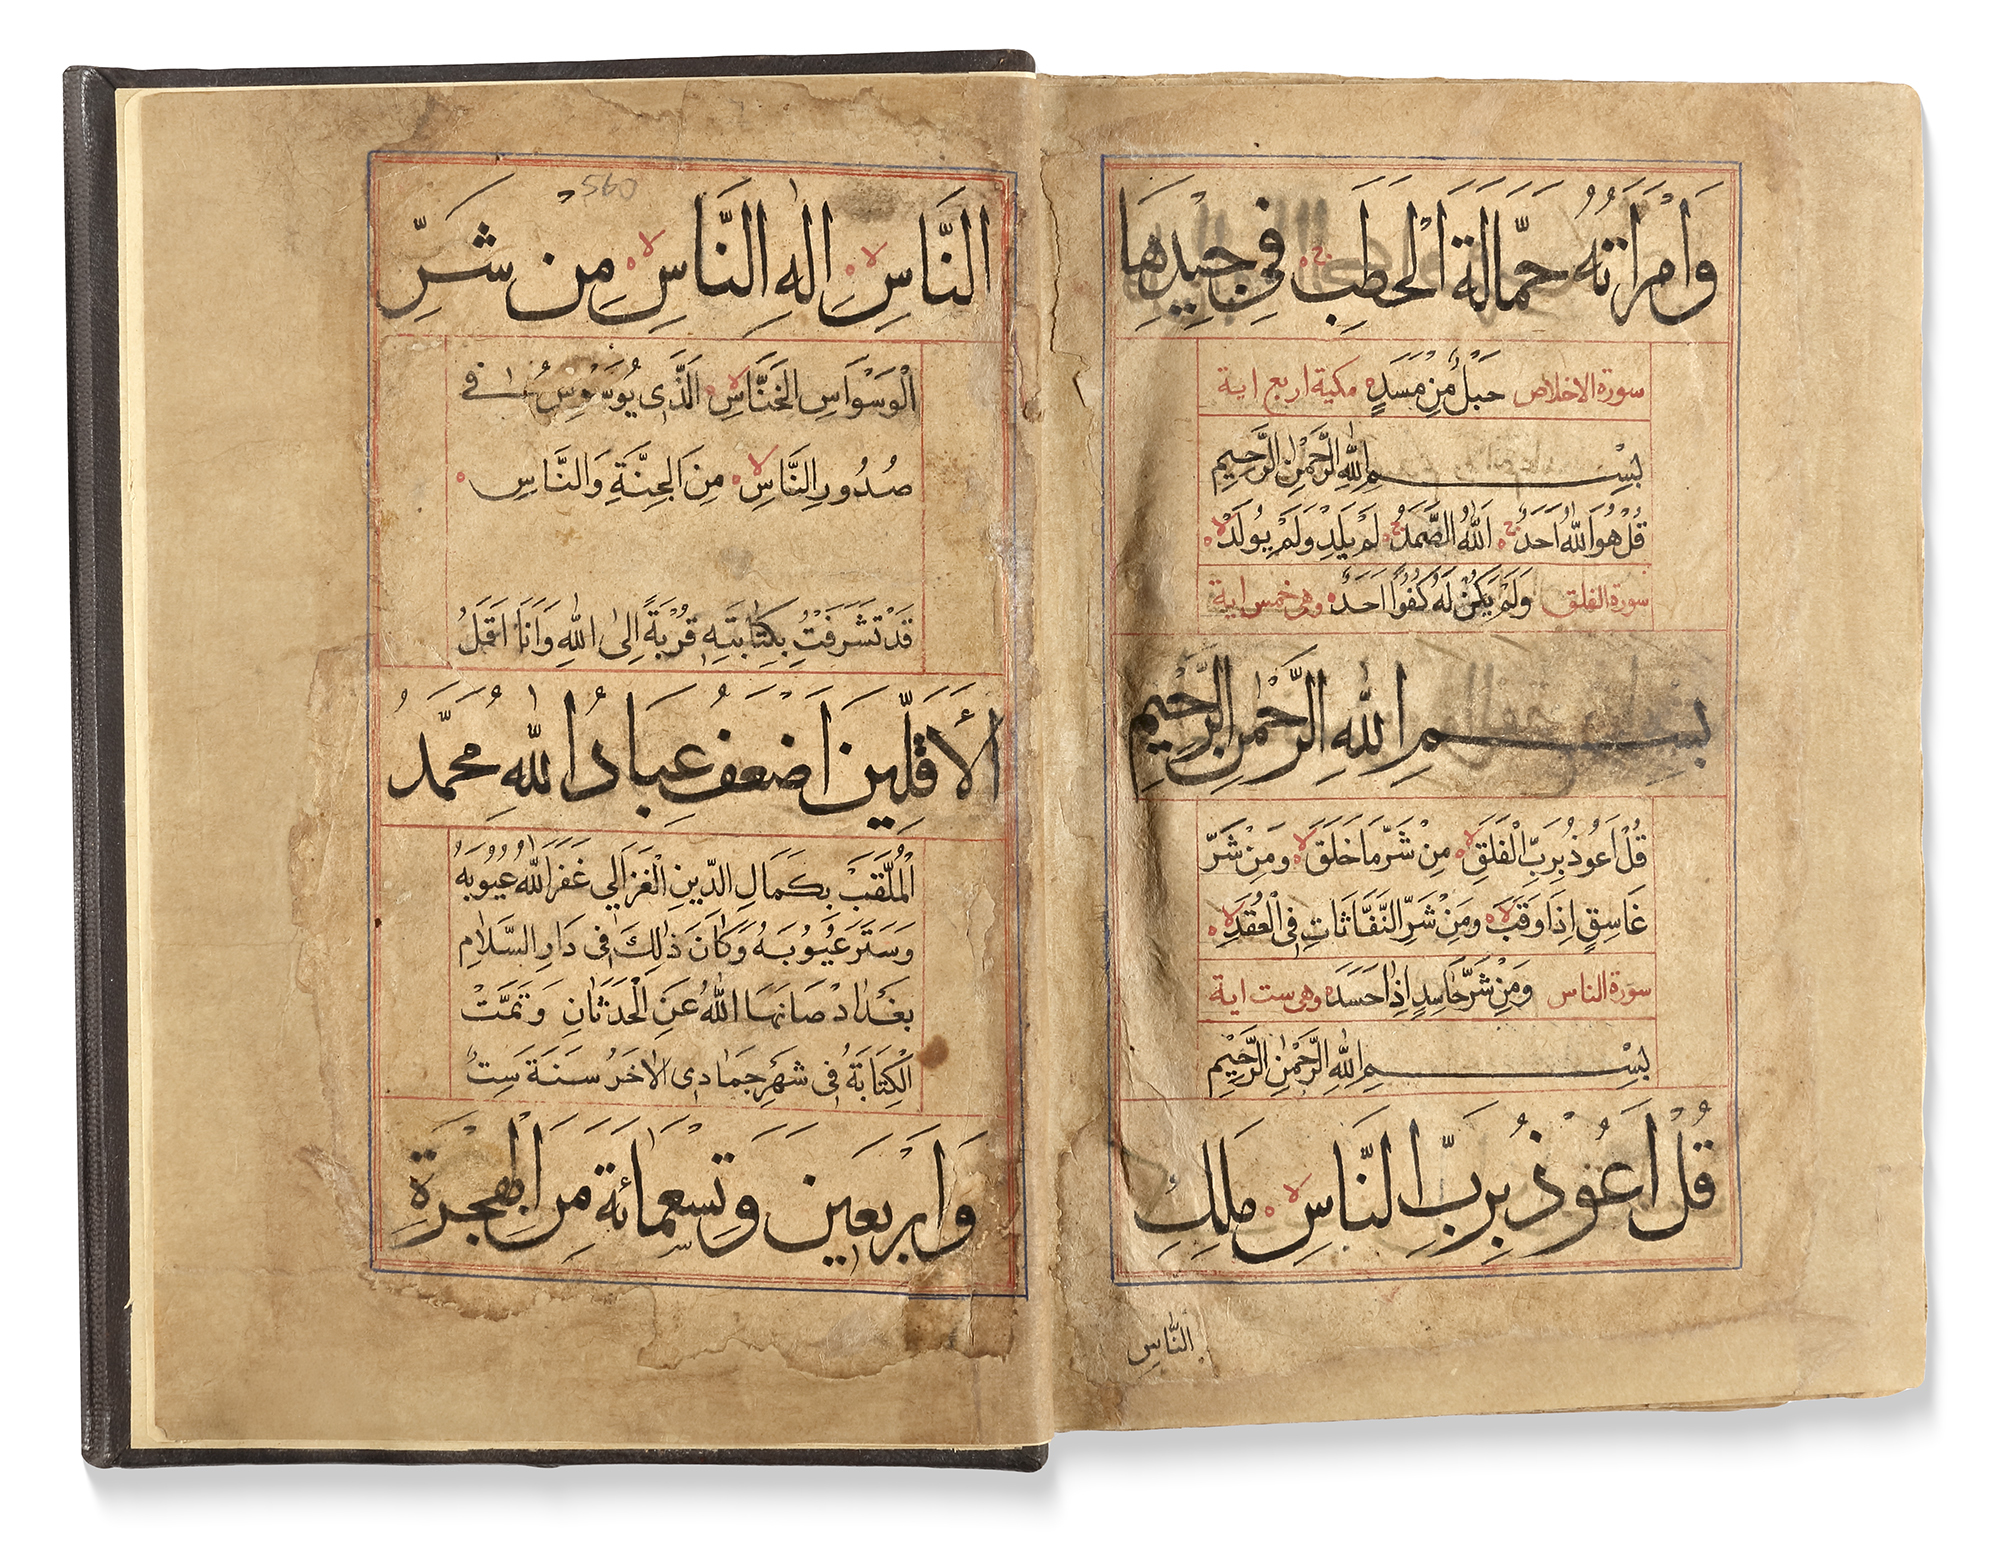 وَامْرَاَتُهُ حَمَّالَةَ الْحَطَبِ فِي جِيْدِهَا
سورة الاخلاص حَبْلٌ مِنْ مَسَدٍ مكية اربع اية
بِسْمِ اللّٰهِ الرَّحْمٰنِ الرَّحِيْمِ
قُلْ هُوَ اللّٰهُ اَحَدٌ ج اَللّٰهُ الصَّمَدُ ج لَمْ يَلِدْ وَلَمْ يُولَدْ لا
سورة الفلق وَلَمْ يَكُنْ لَهُ كُفُوًا اَحَدٌ وهى خمس اية
بِسْمِ اللّٰهِ الرَّحْمٰنِ الرَّحِيْمِ
قُلْ اَعُوذُ بِرَبِّ الْفَلَقِ لا مِنْ شَرِّ مَا خَلَقَ لا وَمِنْ شَرِّ
غَاسِقٍ اِذَا وَقَبَ لا وَمِنْ شَرِّ النَّفَّاثَاتِ فِى الْعُقَدِ لا
سورة الناس وَمِنْ شَرِّ حَاسِدٍ اِذَا حَسَدَ وهى ست اية
بِسْمِ اللّٰهِ الرَّحْمٰنِ الرَّحِيْمِ
قُلْ اَعُوْذُ بِرَبِّ النَّاسِ لا مَلِكِ
النَّاسِ
540
النَّاسِ لا اِلٰهِ النَّاسِ لا مِنْ شَرِّ
الْوَسْوَاسِ الْخَنَّاسِ لا الَّذِى يُوَسْوِسُ فِى
صُدُورِ النَّاسِ لا مِنَ الْجِنَّةِ وَالنَّاسِ
قَدْ تَشَرَفْتُ بِكِتَابَتِهِ قُرْبَةً اِلٰى اللّٰهِ وَاَنَا اَقَلُ
الْاَقَلِّينَ اَضْعَفُ عِبَادُ اللّٰهِ مُحَمَّدُ
الْمُلَقَبْ بِكَمَالِ الدِّينِ الْغَزَالِي غَفَرَ اللّٰهُ عُيُوبَهُ
وَسَتَرَ عُيُوبَهُ وَكَانَ ذٰلِكَ فِى دَارِ السَّلَامِ
بَغْدَادْ صَانَهَا اللّٰهُ عَنِ الْحَدَثَانِ وَتَمَّتْ
الْكِتَابَةُ فِى شَهْرِ جَمَادِى الْاٰخَرُ سَنَةَ سِتُ
وَاَرْبَعِينَ وَتِسْعِمَائَةَ مِنَ الْهِجْرَةِ